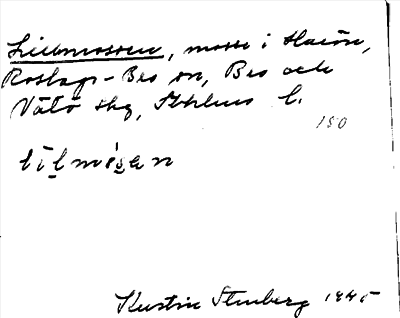 Lillmossen, mosse i Harön,
Roslags-Bro sn, Bro och
Vätö skg, Sthlms l.
150
lìlmósan
Kerstin Stenberg 1945